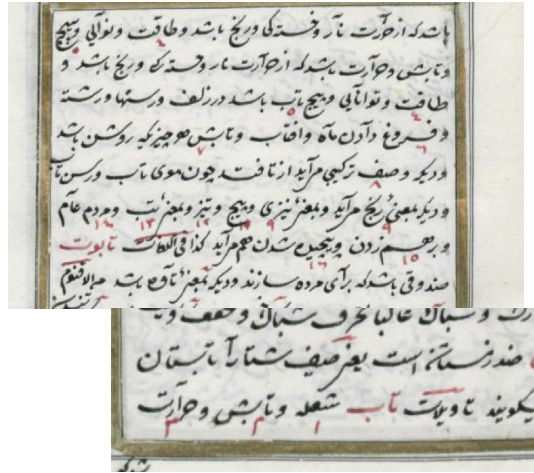 باشد که از حرارت نار و خستگی و رنج باشد و طاقت و توانایی و پیچ
و تابش و حرارت باشد که از حرارت نار و خستگی و رنج باشد و
طاقت و توانایی و پیچ تاب باشد در زلف و رسنها و رشته
و فروغ دادن ماه و افتاب و تابش هر چیز که روشن باشد
و دیگر وصف ترکیبی می آید از تافتن چون موی تاب و رسن تاب
و دیگر بمعنی رنج می آید و بمعنی تیزی و پیچ و تیز و بمعنی تب و مردم عام
و برهم زدن و پیچیدن شدن هم می آید کذا فی اللغات تابوت
صندوقی باشد که برای مرده سازند و دیگر بمعنی باشد
و شباک غالبا شباک و مخفف
ضد زمستان است یعنی صیف شتا را تابستان
میگویند تاویلات تاب شعله و تابش و حرارت